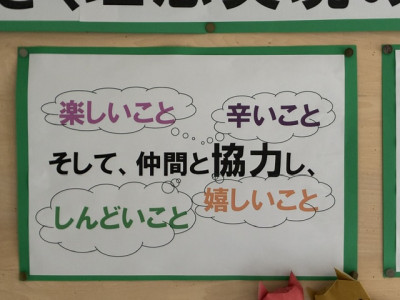 楽しいこと
辛いこと
そして、仲間と協力し、
しんどいこと
嬉しいこと